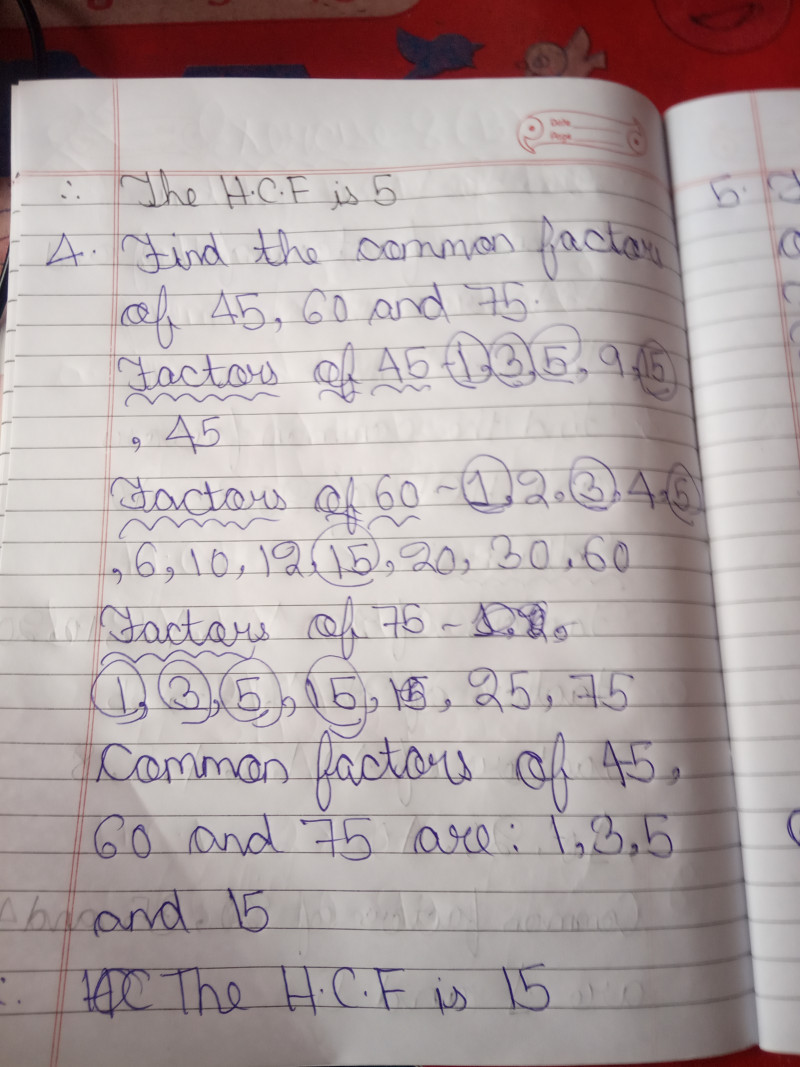 Date
Page
∴ The H.C.F is 5
4. Find the common factors
of 45, 60 and 75.
Factors of 45 - 1, 3, 5, 9, 15
, 45
Factors of 60 - 1, 2, 3, 4, 5
, 6, 10, 12, 15, 20, 30, 60
Factors of 75 -
1, 3, 5, 15, 25, 75
Common factors of 45,
60 and 75 are: 1, 3, 5
and 15
∴ The H.C.F is 15
5.